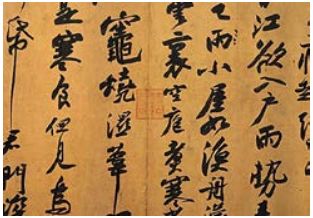 江欲入戶雨勢
已雨小屋如漁舟
雲裏空庖煮寒
竈燒濕葦
是寒食但見烏
帋君門深